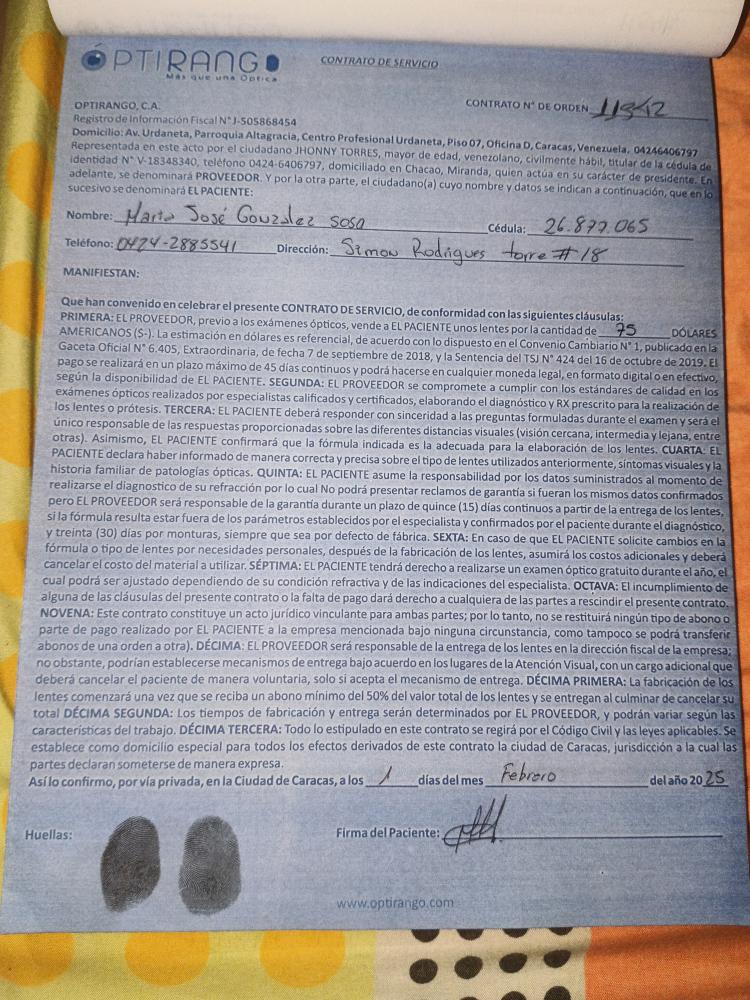 ÓPTIRANGO
Más que una Óptica
CONTRATO DE SERVICIO
OPTIRANGO, C.A.
CONTRATO N° DE ORDEN 11942
Registro de Información Fiscal N° J-505868454
Domicilio: Av. Urdaneta, Parroquia Altagracia, Centro Profesional Urdaneta, Piso 07, Oficina D, Caracas, Venezuela. 04246406797
Representada en este acto por el ciudadano JHONNY TORRES, mayor de edad, venezolano, civilmente hábil, titular de la cédula de
identidad N° V-18348340, teléfono 0424-6406797, domiciliado en Chacao, Miranda, quien actúa en su carácter de presidente. En
adelante, se denominará PROVEEDOR. Y por la otra parte, el ciudadano(a) cuyo nombre y datos se indican a continuación, que en lo
sucesivo se denominará EL PACIENTE:
Nombre: Maria José González sosa Cédula: 26.877.065
Teléfono: 0424-2885541 Dirección: Simon Rodrigues torre # 18
MANIFIESTAN:
Que han convenido en celebrar el presente CONTRATO DE SERVICIO, de conformidad con las siguientes cláusulas:
PRIMERA: EL PROVEEDOR, previo a los exámenes ópticos, vende a EL PACIENTE unos lentes por la cantidad de 75 DÓLARES
AMERICANOS ($-). La estimación en dólares es referencial, de acuerdo con lo dispuesto en el Convenio Cambiario N° 1, publicado en la
Gaceta Oficial N° 6.405, Extraordinaria, de fecha 7 de septiembre de 2018, y la Sentencia del TSJ N° 424 del 16 de octubre de 2019. El
pago se realizará en un plazo máximo de 45 días continuos y podrá hacerse en cualquier moneda legal, en formato digital o en efectivo,
según la disponibilidad de EL PACIENTE. SEGUNDA: EL PROVEEDOR se compromete a cumplir con los estándares de calidad en los
exámenes ópticos realizados por especialistas calificados y certificados, elaborando el diagnóstico y RX prescrito para la realización de
los lentes o prótesis. TERCERA: EL PACIENTE deberá responder con sinceridad a las preguntas formuladas durante el examen y será el
único responsable de las respuestas proporcionadas sobre las diferentes distancias visuales (visión cercana, intermedia y lejana, entre
otras). Asimismo, EL PACIENTE confirmará que la fórmula indicada es la adecuada para la elaboración de los lentes. CUARTA: EL
PACIENTE declara haber informado de manera correcta y precisa sobre el tipo de lentes utilizados anteriormente, síntomas visuales y la
historia familiar de patologías ópticas. QUINTA: EL PACIENTE asume la responsabilidad por los datos suministrados al momento de
realizarse el diagnostico de su refracción por lo cual No podrá presentar reclamos de garantía si fueran los mismos datos confirmados
pero EL PROVEEDOR será responsable de la garantía durante un plazo de quince (15) días continuos a partir de la entrega de los lentes,
si la fórmula resulta estar fuera de los parámetros establecidos por el especialista y confirmados por el paciente durante el diagnóstico,
y treinta (30) días por monturas, siempre que sea por defecto de fábrica. SEXTA: En caso de que EL PACIENTE solicite cambios en la
fórmula o tipo de lentes por necesidades personales, después de la fabricación de los lentes, asumirá los costos adicionales y deberá
cancelar el costo del material a utilizar. SÉPTIMA: EL PACIENTE tendrá derecho a realizarse un examen óptico gratuito durante el año, el
cual podrá ser ajustado dependiendo de su condición refractiva y de las indicaciones del especialista. OCTAVA: El incumplimiento de
alguna de las cláusulas del presente contrato o la falta de pago dará derecho a cualquiera de las partes a rescindir el presente contrato.
NOVENA: Este contrato constituye un acto jurídico vinculante para ambas partes; por lo tanto, no se restituirá ningún tipo de abono o
parte de pago realizado por EL PACIENTE a la empresa mencionada bajo ninguna circunstancia, como tampoco se podrá transferir
abonos de una orden a otra). DÉCIMA: EL PROVEEDOR será responsable de la entrega de los lentes en la dirección fiscal de la empresa;
no obstante, podrían establecerse mecanismos de entrega bajo acuerdo en los lugares de la Atención Visual, con un cargo adicional que
deberá cancelar el paciente de manera voluntaria, solo si acepta el mecanismo de entrega. DÉCIMA PRIMERA: La fabricación de los
lentes comenzará una vez que se reciba un abono mínimo del 50% del valor total de los lentes y se entregan al culminar de cancelar su
total DÉCIMA SEGUNDA: Los tiempos de fabricación y entrega serán determinados por EL PROVEEDOR, y podrán variar según las
características del trabajo. DÉCIMA TERCERA: Todo lo estipulado en este contrato se regirá por el Código Civil y las leyes aplicables. Se
establece como domicilio especial para todos los efectos derivados de este contrato la ciudad de Caracas, jurisdicción a la cual las
partes declaran someterse de manera expresa.
Así lo confirmo, por vía privada, en la Ciudad de Caracas, a los 1 días del mes Febrero del año 2025
Huellas:
Firma del Paciente:
www.optirango.com